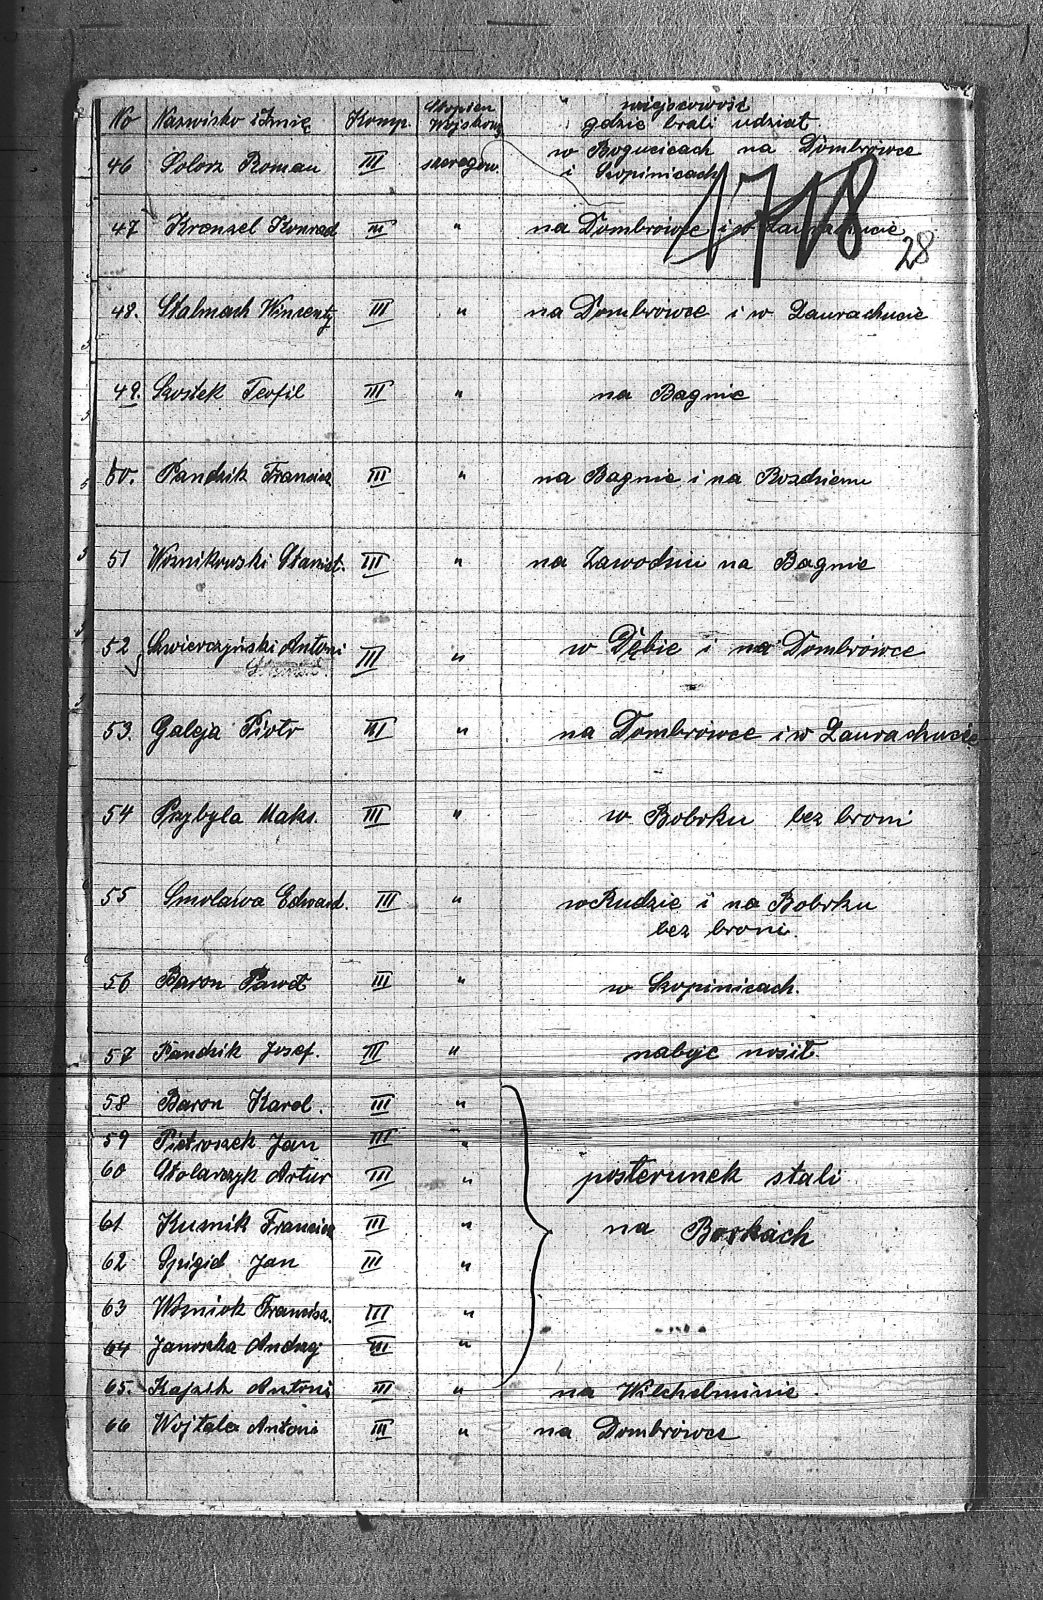 No Nazwisko i Imię Komp. Stopień Wojskowy miejscowość gdzie brali udział
46 Solorz Roman III szeregow. w Bogucicach na Dombrówce
i Szopinicach
1718
47 Kronsel Konrad III " na Dombrówce i w Laurachucie
28
48. Stalmach Winsenty III " na Dombrówce i w Laurachucie
49. Szostek Teofil III " na Bagnie
50. Pandzik Francisz III " na Bagnie i na Rozdzieniu
51 Woznikowski Stanisł. III " na Zawodziu na Bagnie
52 Szwierczyński Antoni III " w Dębie i na Dombrówce
53. Galeja Piotr III " na Dombrówce i w Laurachucie
54 Przybyla Maks. III " w Bobrku bez broni
55 Smolawa Edward. III " w Rudzie i na Bobrku
bez broni.
56 Baron Paweł III " w Szopinicach.
57 Pandzik Josef. III " naboje nosił
58 Baron Karol. III "
59 Pietroszek Jan III "
60 Stolarczyk Artur III " posterunek stali
61 Kusnik Francisz III " na Borkach
62 Spigid Jan III "
63 Wozniok Francisz. III "
64 Janoszka Andrzej III "
65. Kajzik Antoni III " na Wilchelminie.
66 Wojtala Antoni III " na Dombrówce